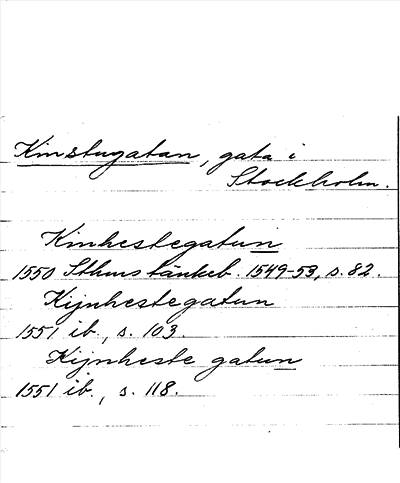 Kinstugatan, gata i
Stockholm.
Kinhestegatun
1550 Sthms tänkeb. 1549-53, s. 82.
Kijnhestegatun
1551 ib., s. 103.
Kijnheste gatun
1551 ib., s. 118.